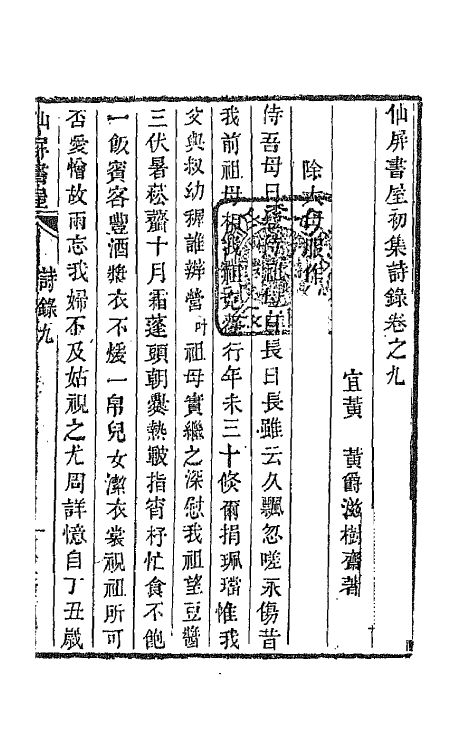 仙屏書屋初集詩錄卷之九
宜黃 黃爵滋樹齋著
除
侍吾母曰
長日長雖云久飄忽嗟永傷昔
我前祖母
行年未三十倏爾捐珮璫惟我
父與叔幼穉誰辦營叶祖母實繼之深慰我祖望豆醬
三伏暑菘虀十月霜蓬頭朝爨熱皸指宵杼忙食不飽
一飯賓客豐酒漿衣不煖一帛兒女潔衣裳視祖所可
否愛憎故兩忘我婦不及姑視之尤周詳憶自丁丑歲
仙屏書屋
詩錄九